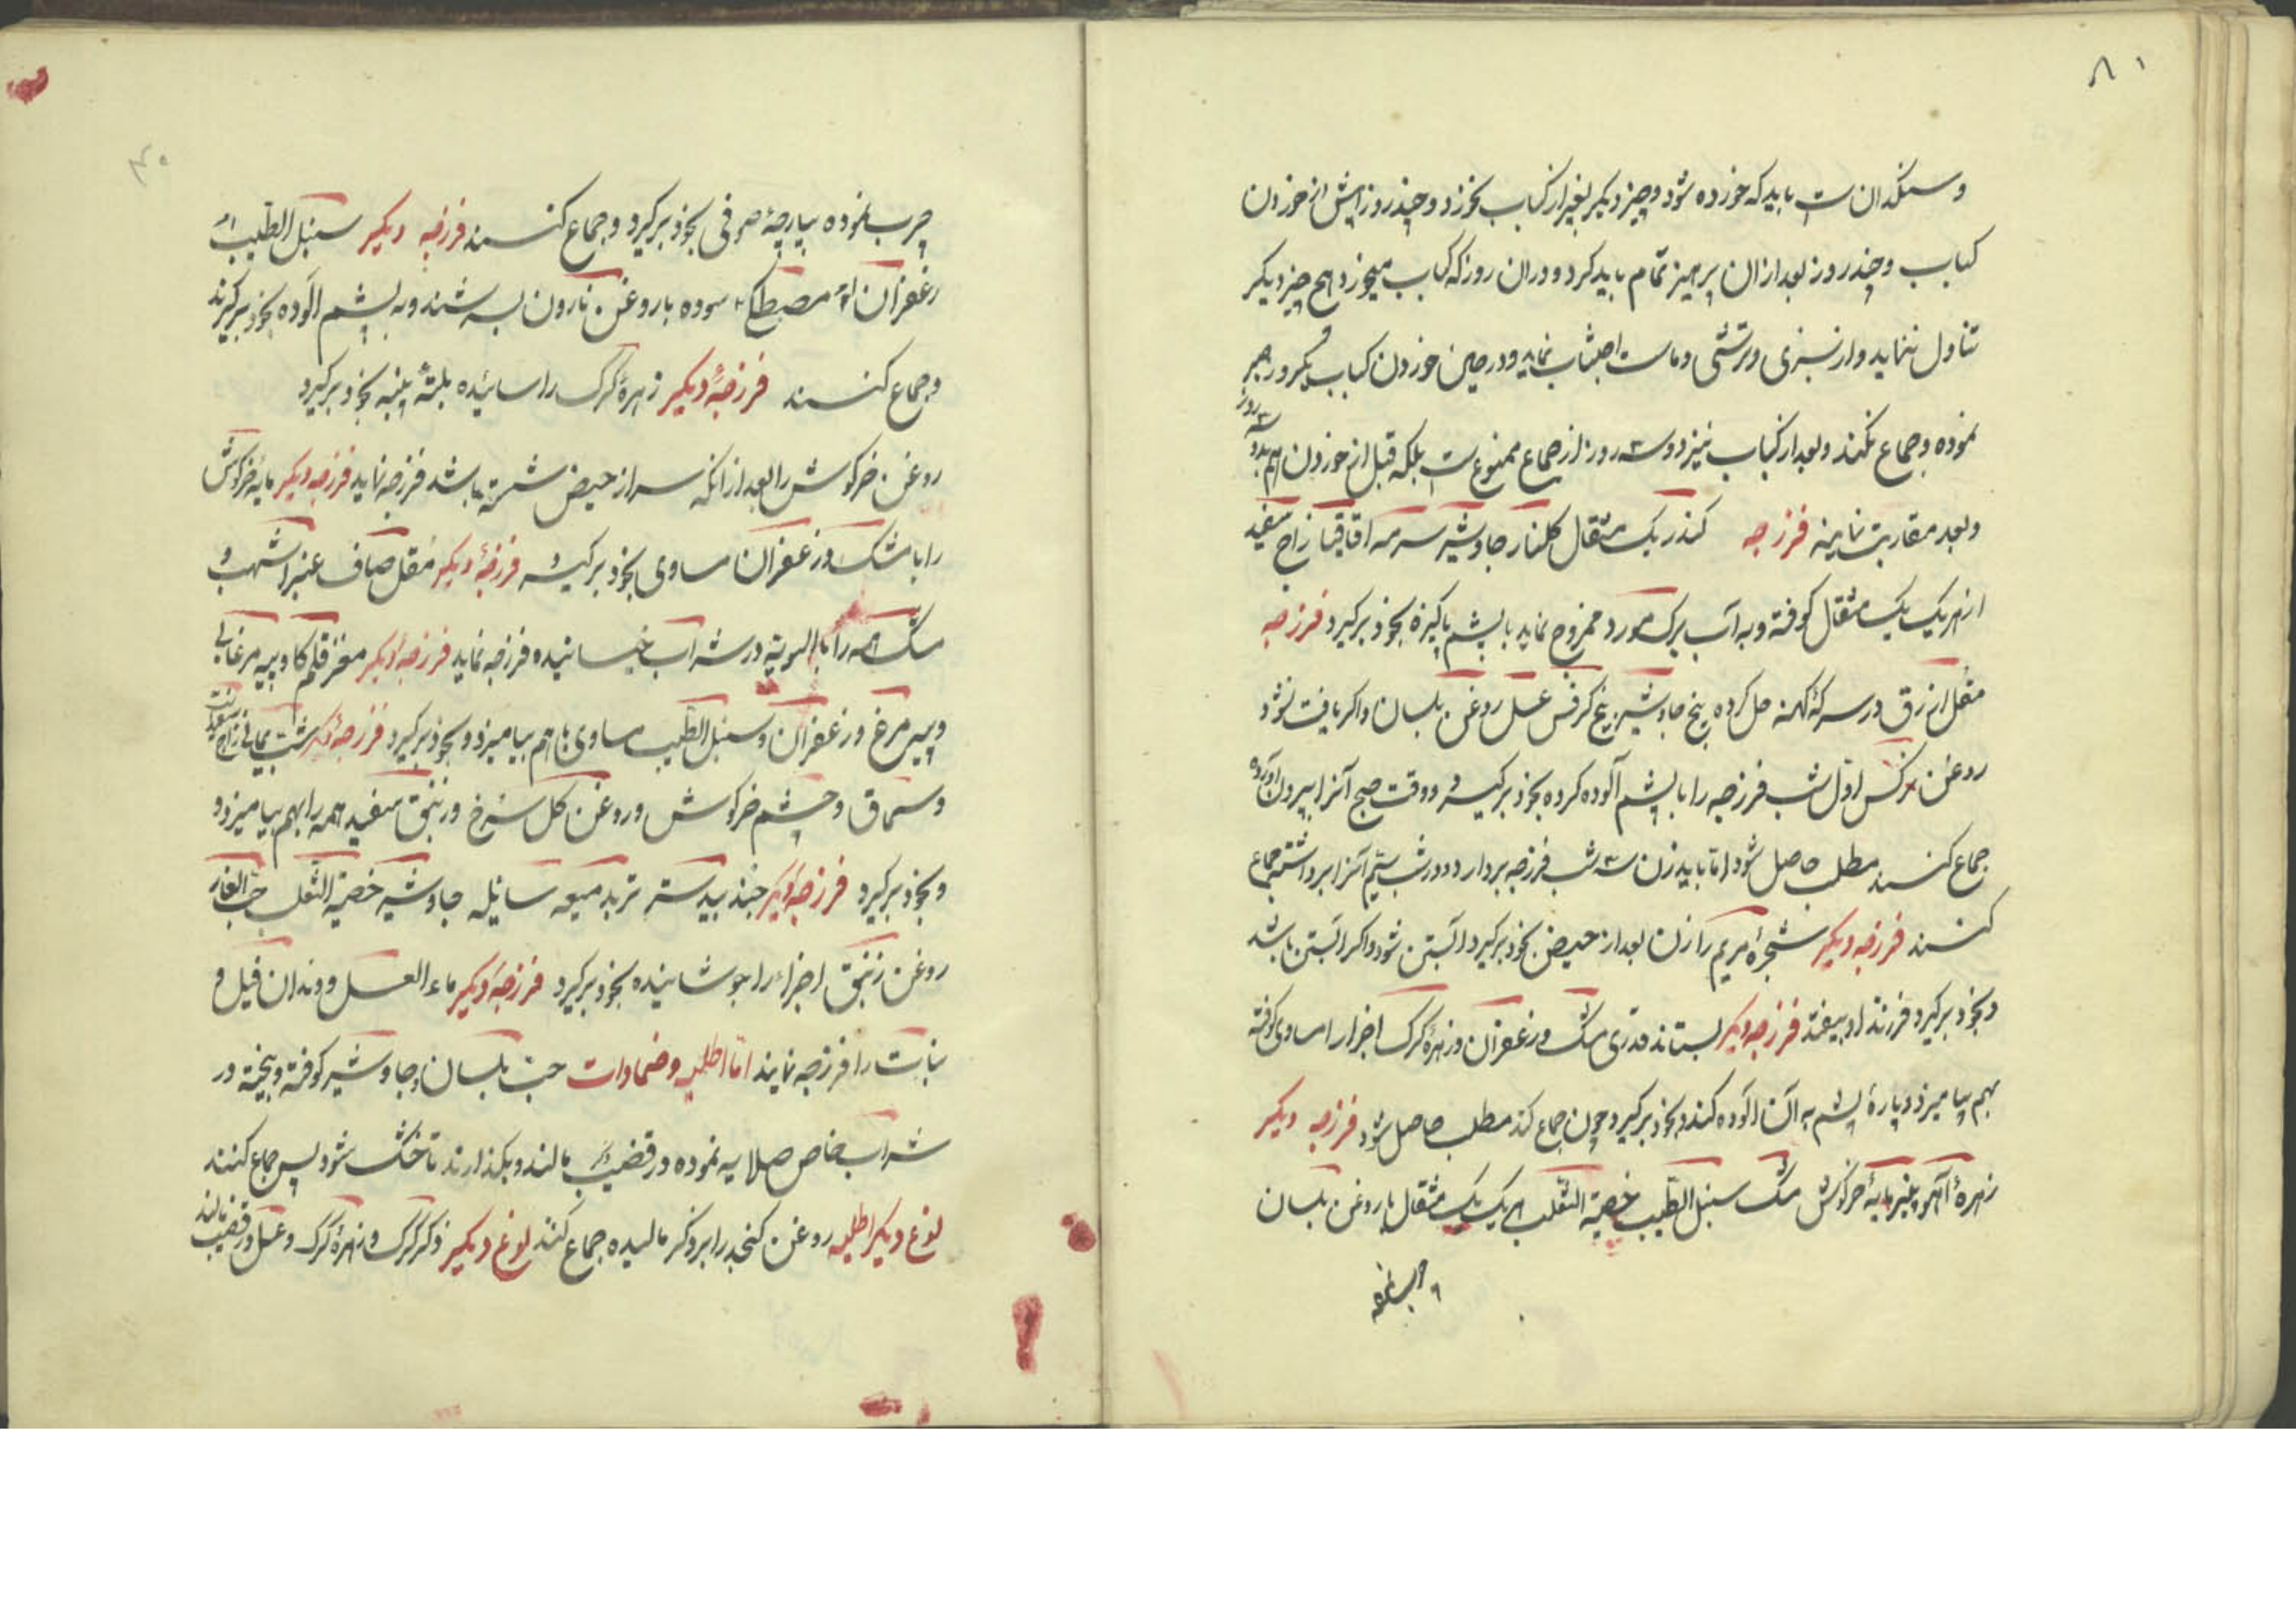 ۸۱
و سنگدان است باید که خورده شود و چیز دیگر بغیر از کباب نخورد و چند روز پیش از خوردن
کباب و چند روز بعد از ان پرهیز تمام باید کرد و دران روز که کباب میخورد هیچ چیز دیگر
تناول ننماید و از سبزی و ترشی و ماست اجتناب نماید و در حین خوردن کباب
نموده و جماع نکند و بعد از کباب نیز دو سه روز از جماع ممنوع است بلکه قبل از خوردن هم
و بعد مقاربت نماینه فرزجه کندر یک مثقال گلنار جاوشیر سرمه اقاقیا زاج سفید
از هر یک یک مثقال کوفته و به آب برک مورد ممزوج نماید با پشم پاکیزه بخود برگیرد فرزجه
مقل ازرق در سرکهٔ کهنه حل کرده بیخ جاوشیر بیخ کرفس عسل روغن بلسان و اگر یافت نشود
روغن نرکس اول شب فرزجه را با پشم آلوده کرده بخود برگیرد و وقت صبح آنرا بیرون آورده
جماع کنند مطلب حاصل شود اما باید زن سه شب فرزجه بردارد و در شب سیم آنرا برداشته جماع
کنند فرزجه دیگر شجرهٔ مریم را زن بعد از حیض بخود برگیرد آبستن شود و اگر آبستن باشد
و بخود برگیرد فرزند او بیفتد فرزجه دیگر بستاند قدری مشک و زعفران و زهرهٔ گرگ اجزا را مساوی کوفته
بهم بیامیزد و پارهٔ پشم به آن آلوده کند و بخود برگیرد چون جماع کند مطلب حاصل شود فرزجه دیگر
زهرهٔ آهو پنیر مایهٔ خرگوش مشک سنبل الطیب خصیة الثعلب هر یک یک مثقال با روغن بلسان
چرب نموده بپارچهٔ صوفی بخود برگیرد و جماع کنند فرزجه دیگر سنبل الطیب
زعفران مصطکی سوده با روغن نارون بسرشند و به پشم آلوده بخود برگیرند
و جماع کنند فرزجهٔ دیگر زهرهٔ گرگ را سائیده بلتهٔ پنبه بخود برگیرد
روغن خرگوش را بعد از آنکه سر از حیض شسته باشد فرزجه نماید فرزجه دیگر مایهٔ خرگوش
را با مشک و زعفران مساوی بخود برگیرد فرزجهٔ دیگر مقل صاف عنبر اشهب و
مشک همه را بالسویة در شراب خیسانیده فرزجه نماید فرزجهٔ دیگر مغز قلم گاو پیه مرغابی
و پیه مرغ و زعفران و سنبل الطیب مساوی باهم بیامیزد و بخود برگیرد فرزجهٔ دیگر شب یمانی زاج سفید
و سماق و چشم خرگوش و روغن گل سرخ و زنبق سفید همه را بهم بیامیزد و
و بخود برگیرد فرزجهٔ دیگر جندبیدستر تربد میعه سائله جاوشیر خصیة الثعلب حب الغار
روغن زنبق اجزاء را جوشانیده بخود برگیرد فرزجهٔ دیگر ماء العسل و دندان فیل و
نبات را فرزجه نمایند اما اطلیه و ضمادات حب بلسان و جاوشیر کوفته و بیخته در
شراب خاص صلایه نموده در قضیب مالند و بگذارند تا خشک شود پس جماع کنند
نوع دیگر اطلیه روغن کنجد را بر ذکر مالیده جماع کنند نوع دیگر ذکر گرگ و زهرهٔ گرگ و عسل در قضیب مالند